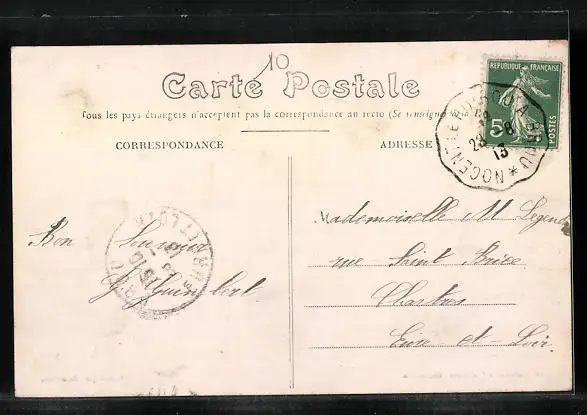 10
Carte Postale
Tous les pays étrangers n'acceptent pas la correspondance au recto (Se renseigner
CORRESPONDANCE
ADRESSE
REPUBLIQUE FRANÇAISE
5
POSTES
NOGENT-LE-ROU A BROU *
23 - 8
13
Bon Souvenir
Mademoiselle M Legendre
rue Saint Brice
Chartres
Eure-et-Loir